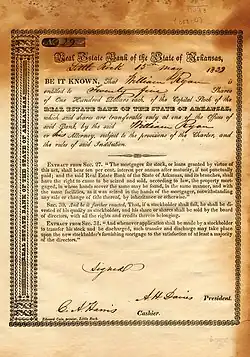 No. 29
Real Estate Bank of the State of Arkansas,
Little Rock 15th May 1839
BE IT KNOWN, That William Ryan is
entitled to Twenty five Shares
of One Hundred Dollars each, of the Capital Stock of the
REAL ESTATE BANK OF THE STATE OF ARKANSAS,
which said shares are transferable only at one of the Offices of
said Bank, by the said William Ryan
or his Attorney, subject to the provisions of the Charter, and
the rules of said Institution.
EXTRACT FROM SEC. 27. "The mortgages for stock, or loans granted by virtue of
this act, shall bear ten per cent. interest per annum after maturity, if not punctually
paid; and the said Real Estate Bank of the State of Arkansas, and its branches, shall
have the right to cause to be seized and sold, according to law, the property mortgaged,
in whose hands soever the same may be found, in the same manner, and with
the same facilities, as it was seized in the hands of the mortgagor, notwithstanding
any sale or change of title thereof, by inheritance or otherwise."
SEC. 29. Be it further enacted, That, if a stockholder shall fail, he shall be
divested of his quality of stockholder, and his share or shares shall be sold by the board
of directors, with all the rights and credits thereto belonging.
EXTRACT FROM SEC. 31. "And whenever application shall be made by a stockholder
to transfer his stock and be discharged, such transfer and discharge may take place
upon the new stockholder's furnishing mortgage to the satisfaction of at least a majority
of the directors."
Signed
President.
Cashier.